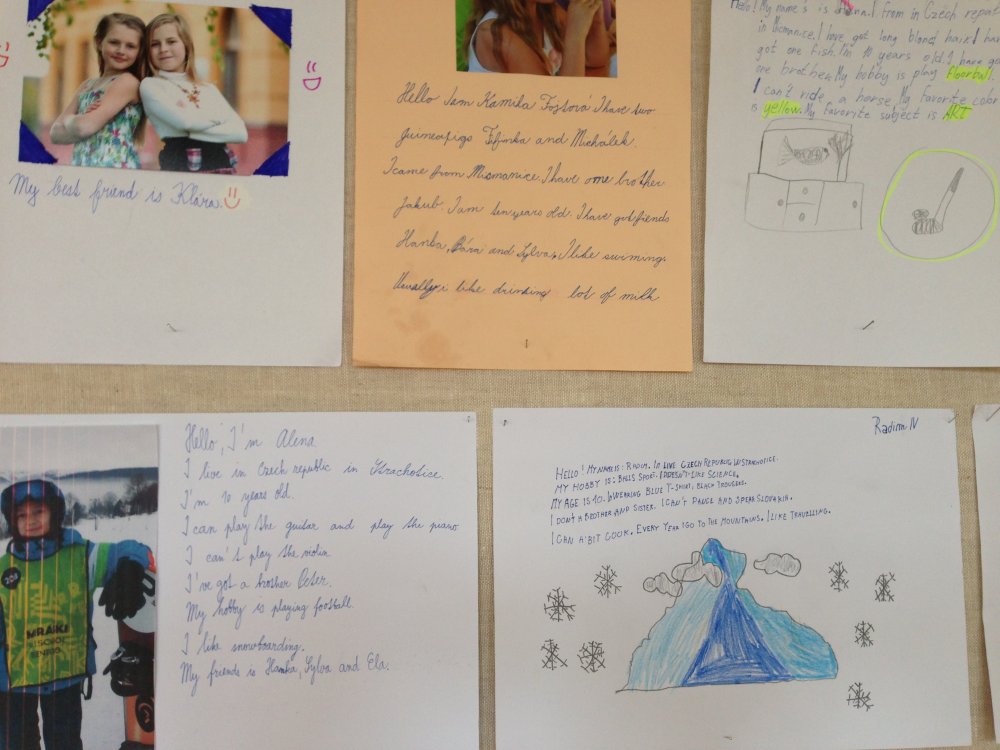 My best friend is Klára.
Hello I am Kamila Fojtová I have two
guineapigs Fifinka and Michálek.
I came from Mismanice. I have one brother
Jakub. I am ten years old. I have got fiends
Hanka, Bára and Sylva. I like swiming.
Usually i like drinking lot of milk
Hello! My name's is I from in Czech repas
in I have got long blond hair. I hav
got one fish. I'm 10 years old. I have go
one brother. My hobby is play floorbal.
I can't ride a horse. My favorite color
is yellow. My favorite subject is
Hello, I'm Alena
I live in Czech republic in Strachotice.
I'm 10 years old.
I can play the guitar and play the piano
I can't play the violin
I've got a brother Peter.
My hobby is playing football.
I like snowboarding.
My friends is Hanka, Sylva and Ela.
204
MRAKI
Radim N
HELLO! MY NAME IS: RADIM. IM LIVE CZECH REPUBLIC IN STRACHOTICE.
MY HOBBY IS: BALLS SPORT. I DOESN'T LIKE SCIENCE.
MY AGE IS 10. WEARING BLUE T-SHIRT, BLACK TROUSERS.
I DON'T A BROTHER AND SISTER. I CAN'T DANCE AND SPEAK SLOVAKIA.
I CAN A BIT COOK. EVERY YEAR I GO TO THE MOUNTAINS. I LIKE TRAVELLING.